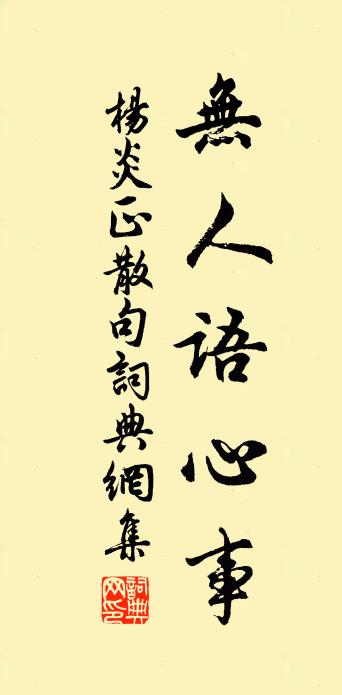 無人語心事
楊炎正散句詞典網集
詞典網印